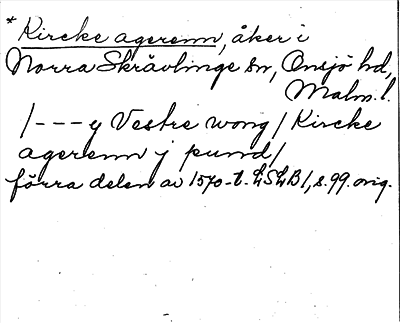 * Kircke agerenn, åker i
Norra Skrävlinge sn, Onsjö hd,
Malm. l.
/--- y Vestre wong / Kircke
agerenn j pund /
förra delen av 1570-t. LSLB 1, s. 99. orig.